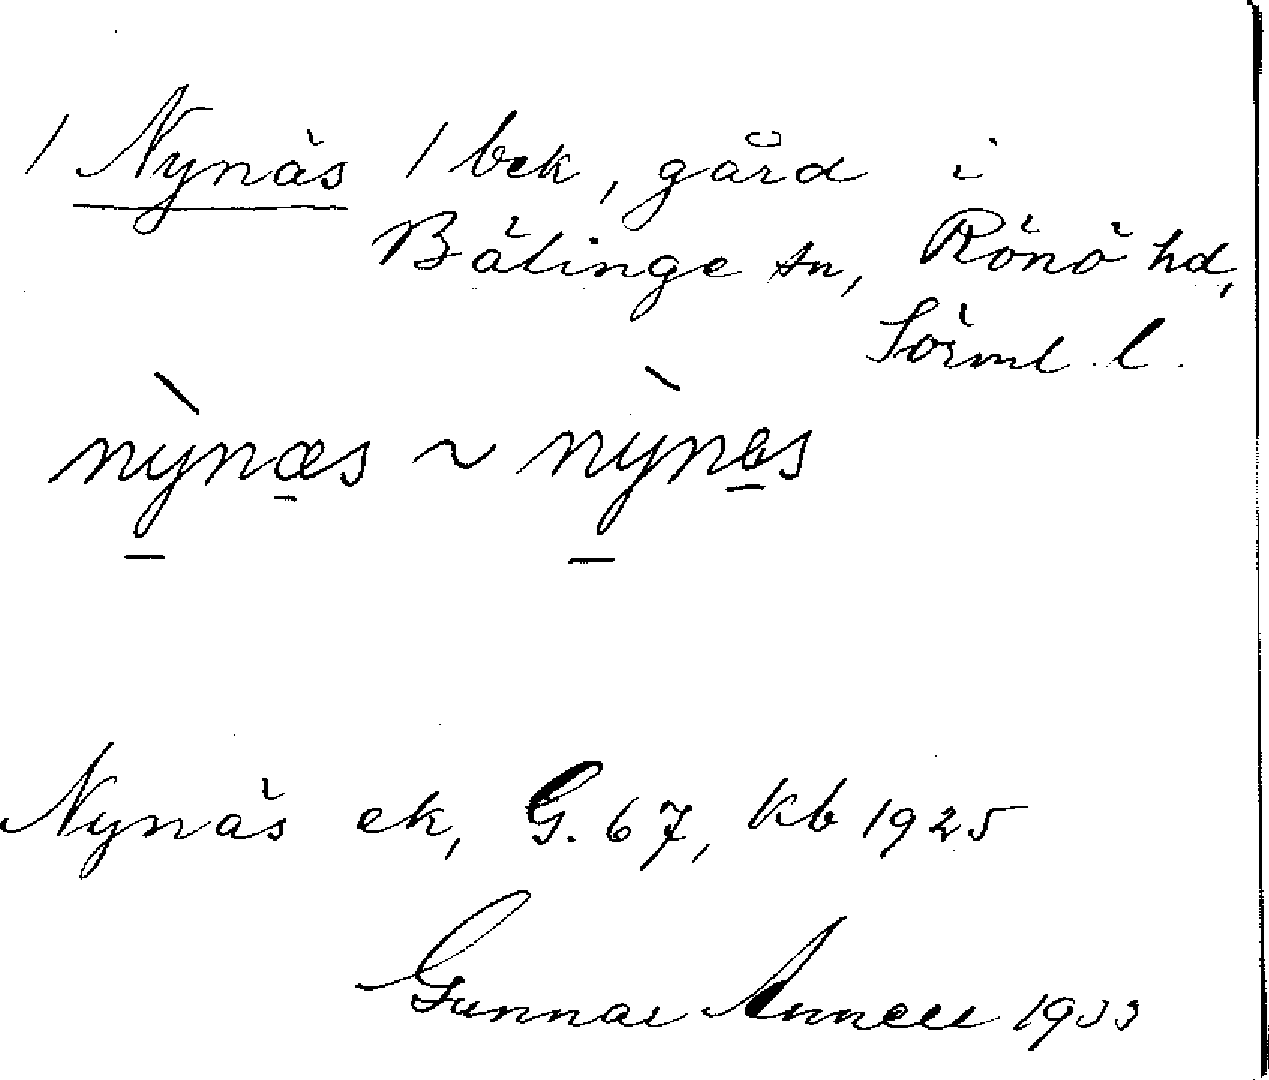 / Nynäs / bek, gård i
Bälinge sn, Rönö hd,
Sörml. l.
nỳnæs ~ nỳnəs
Nynäs ek, G. 67, kb 1925
Gunnar Annell 1933